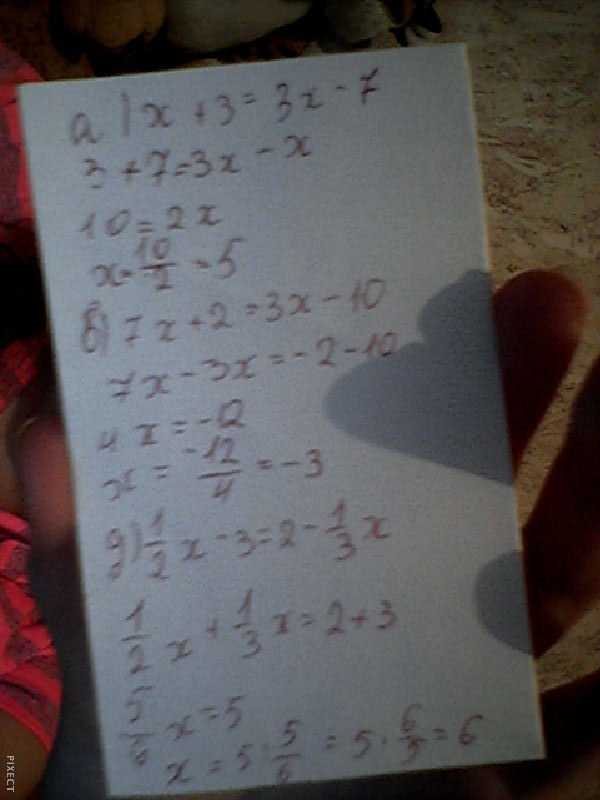 а) x + 3 = 3x - 7
3 + 7 = 3x - x
10 = 2x
x = 10/2 = 5
б) 7x + 2 = 3x - 10
7x - 3x = -2 - 10
4x = -12
x = -12/4 = -3
д) 1/2 x - 3 = 2 - 1/3 x
1/2 x + 1/3 x = 2 + 3
5/6 x = 5
x = 5 : 5/6 = 5 · 6/5 = 6
PIXECT